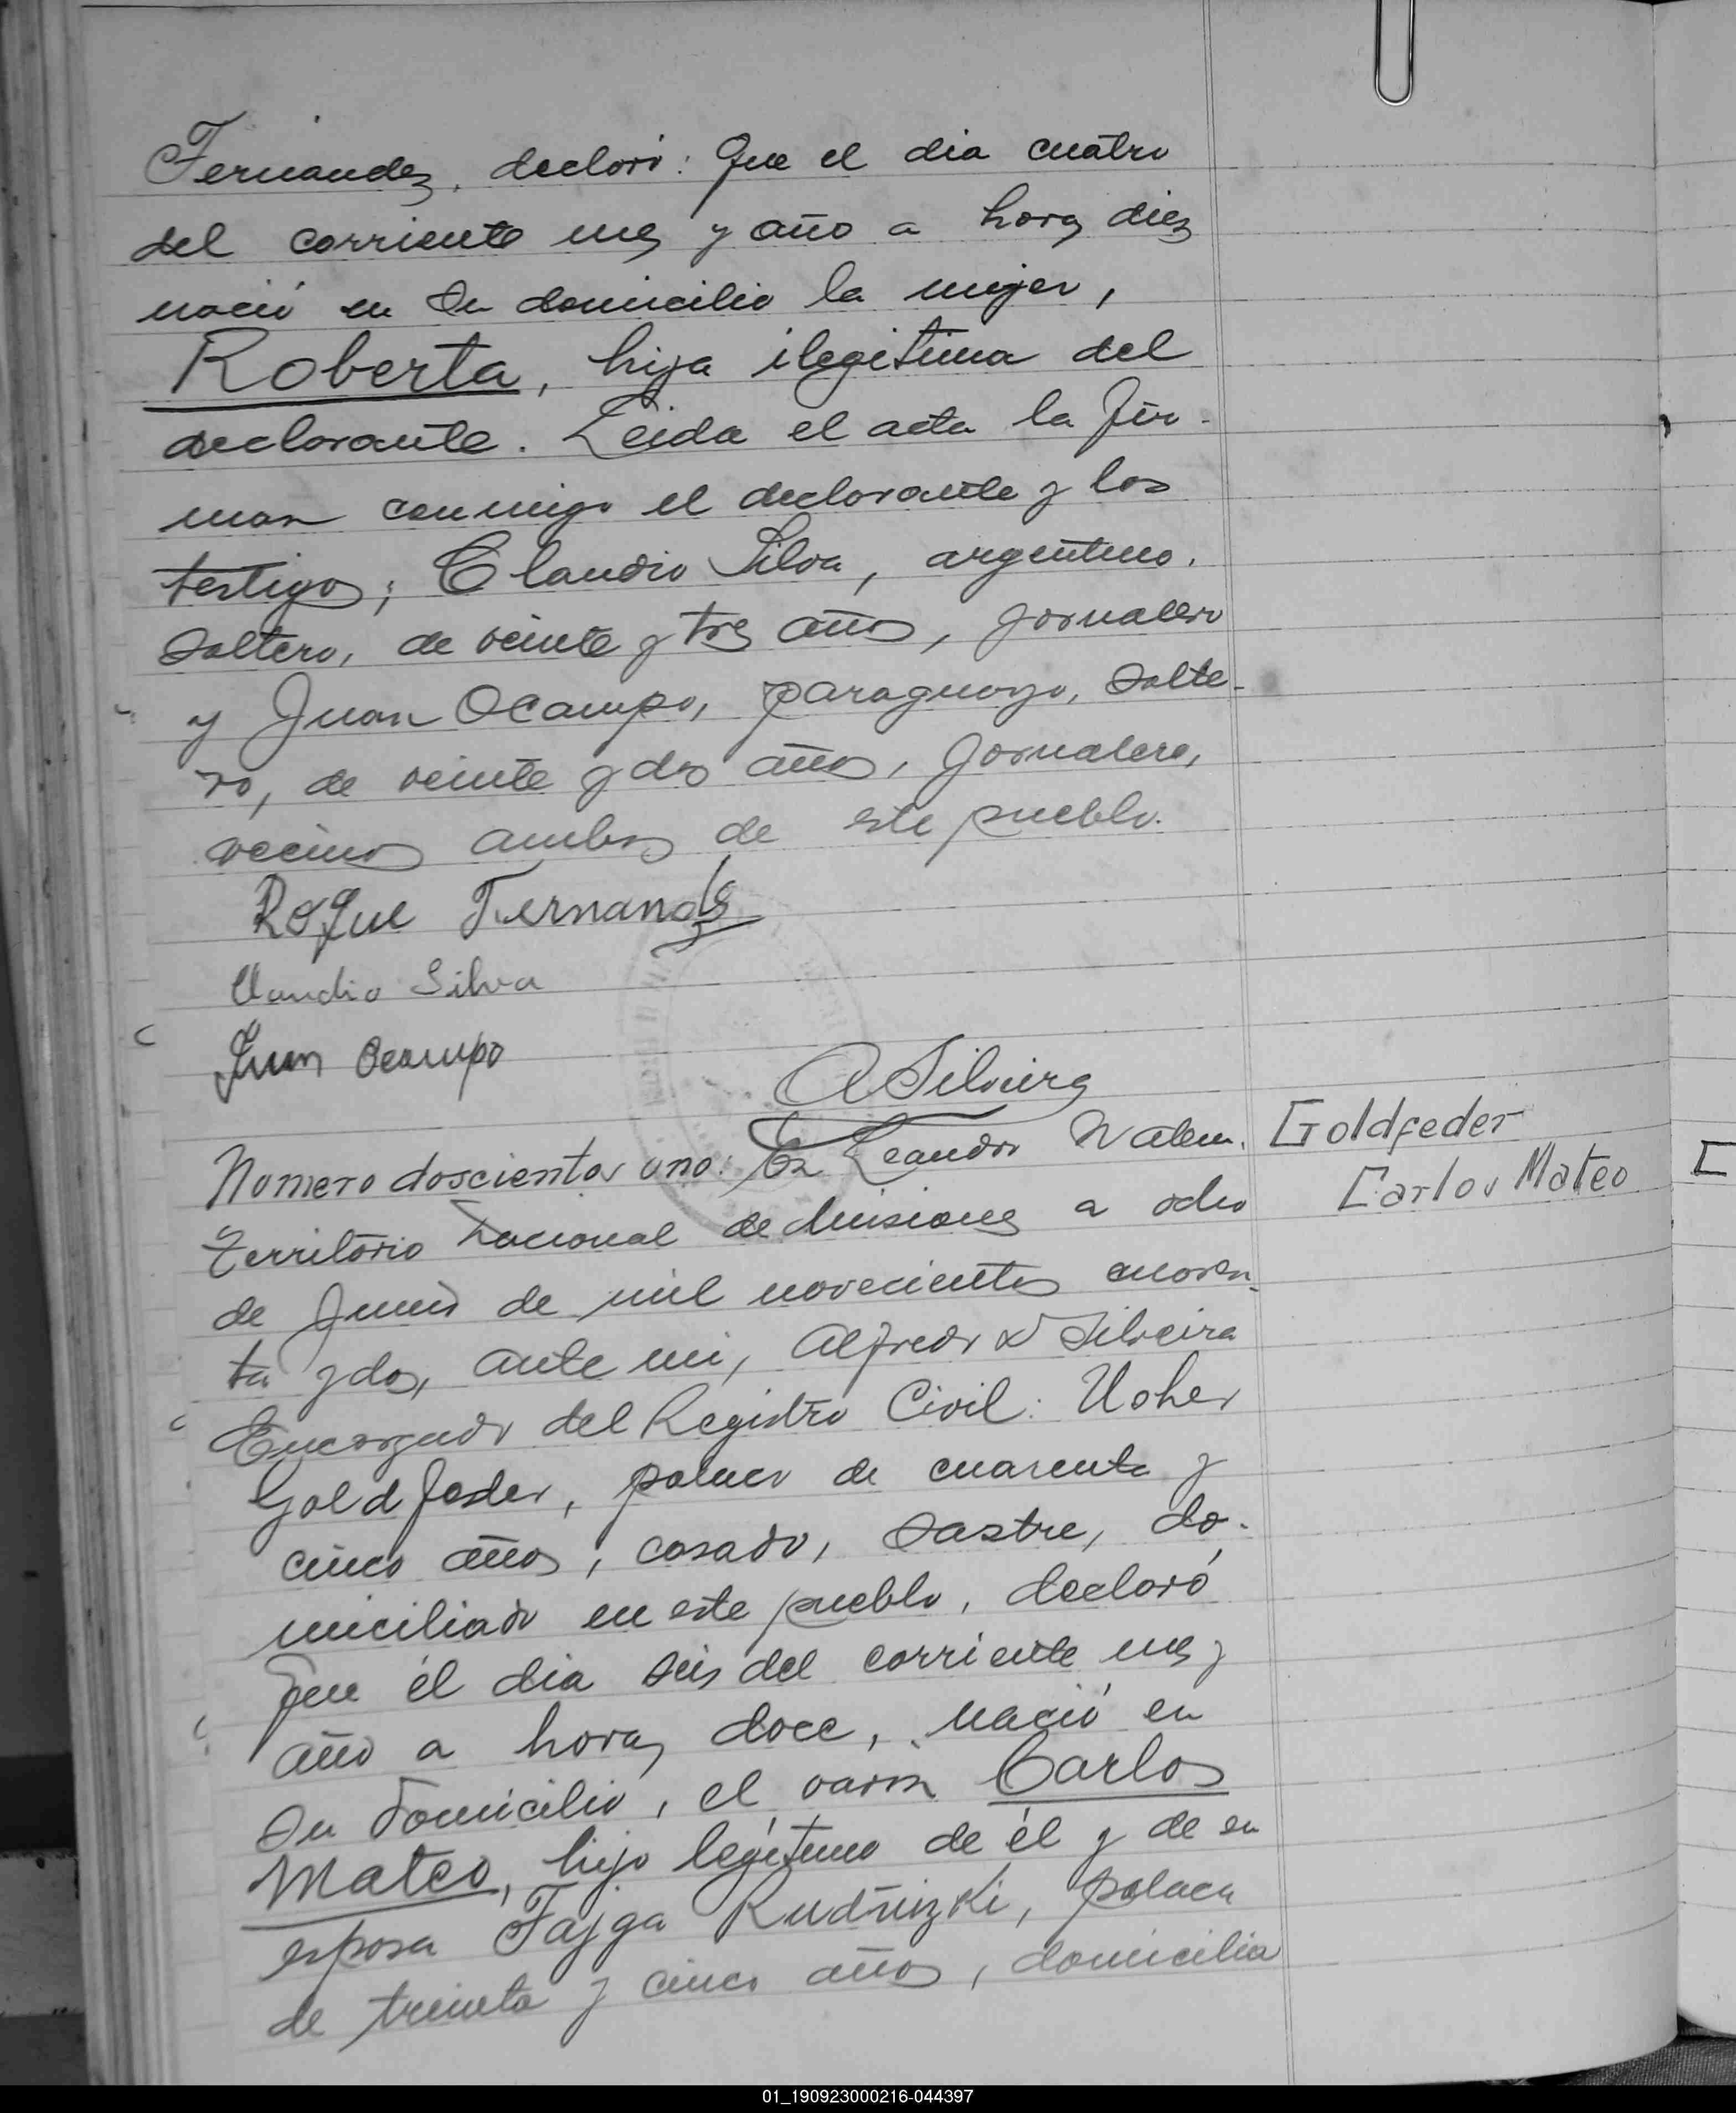 Fernandez, declaró: Que el dia cuatro
del corriente mes y año a horas diez
nació en su domicilio la mujer,
Roberta, hija ilegitima del
declarante. Leida el acta la fir-
man conmigo el declarante y los
testigos; Claudio Silva, argentino,
soltero, de veinte y tres años, jornalero
y Juan Ocampo, paraguayo, solte-
ro, de veinte y dos años, jornalero,
vecinos ambos de este pueblo.
Roque Fernandes
Claudio Silva
Juan Ocampo
A Silveira
Numero doscientos uno: En Leandro N Alem.
Goldfeder
Carlos Mateo
Territorio Nacional de Misiones a ocho
de Junio de mil novecientos cuaren-
ta y dos, ante mi, Alfredo D Silveira
Encargado del Registro Civil: Usher
Goldfeder, polaco de cuarenta y
cinco años, casado, sastre, do-
miciliado en este pueblo, declaró
que él dia seis del corriente mes y
año a horas doce, nació en
su domicilio, el varón Carlos
Mateo, hijo legítimo de él y de su
esposa Fajga Rudnizki, polaca
de treinta y cinco años, domicilia
01_190923000216-044397